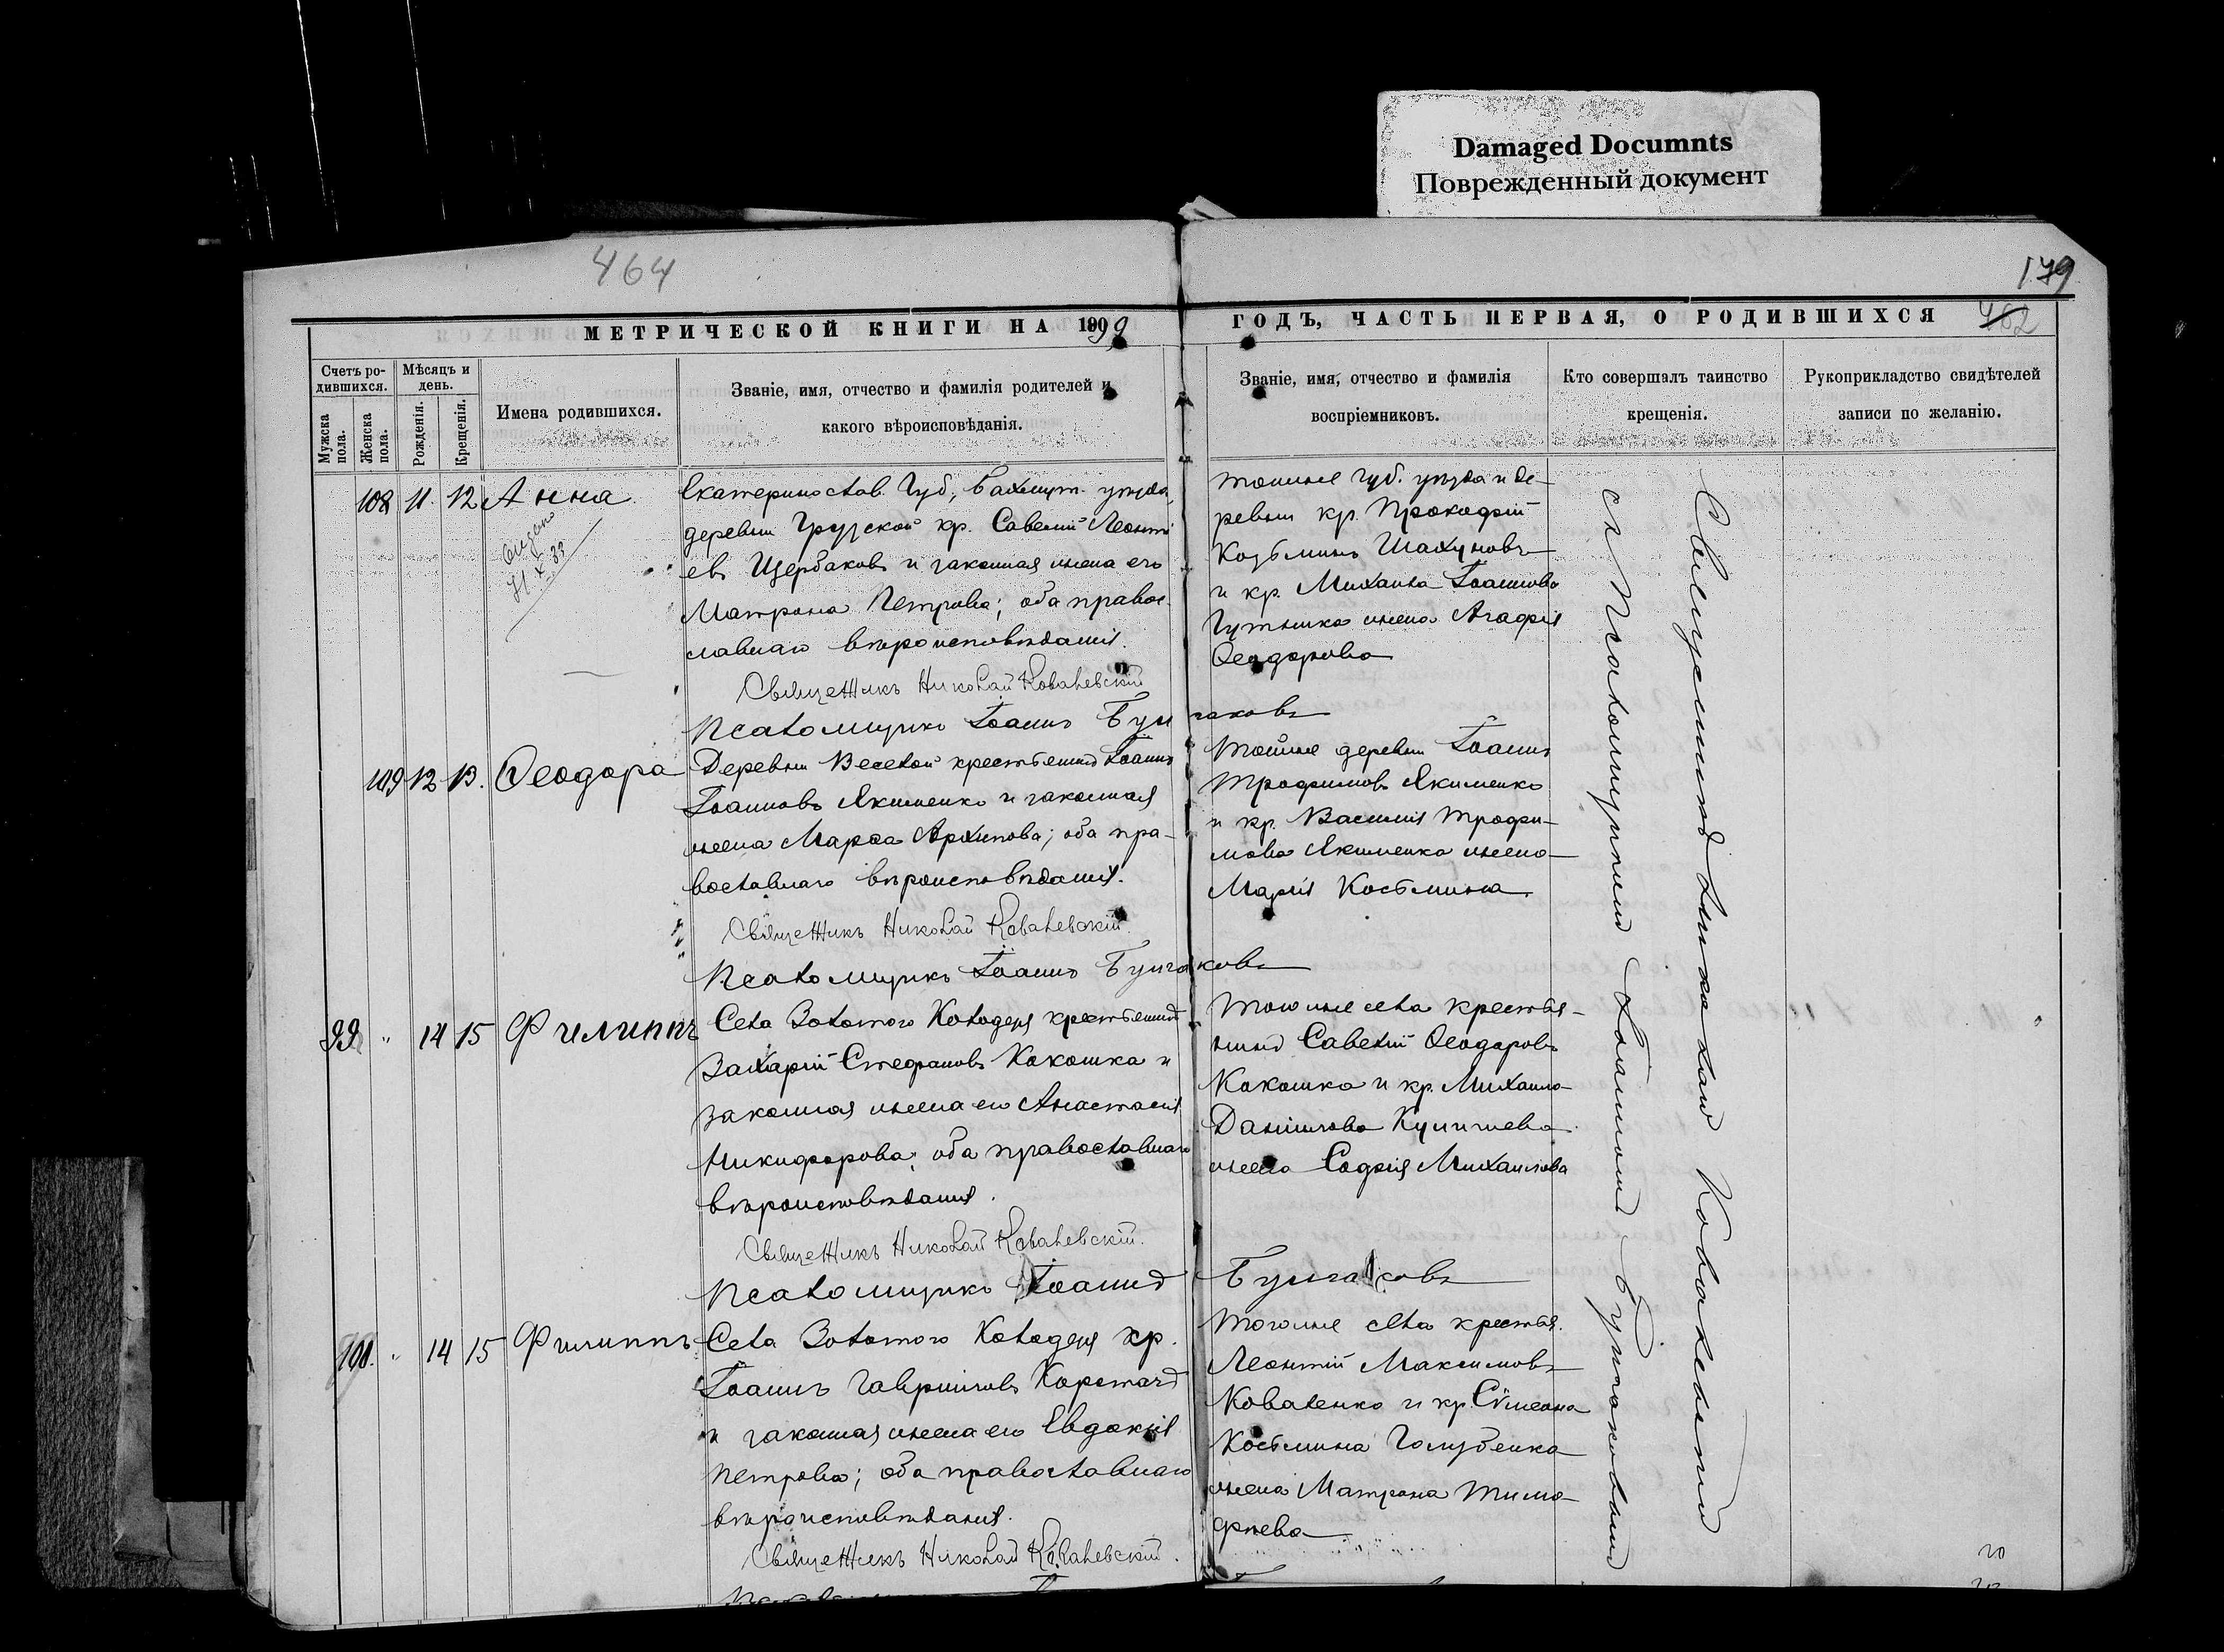 Damaged Documnts
Поврежденный документ
464
179
МЕТРИЧЕСКОЙ КНИГИ НА 1899
ГОДЪ, ЧАСТЬ ПЕРВАЯ, О РОДИВШИХСЯ
462
Счетъ ро-
дившихся.
Мѣсяцъ и
день.
Мужска
пола.
Женска
пола.
Рожденія.
Крещенія.
Имена родившихся.
Званіе, имя, отчество и фамилія родителей и
какого вѣроисповѣданія.
Званіе, имя, отчество и фамилія
воспріемниковъ.
Кто совершалъ таинство
крещенія.
Рукоприкладство свидѣтелей
записи по желанію.
108 11. 12 Анна
Екатеринослав. Губ, Бахмут. уѣзда,
деревни Грузской кр. Савелій Леонті
евъ Щербаковъ и законная жена его
Матрона Петрова; оба право-
славнаго вѣроисповѣданія.
Священникъ Николай Ковалевскій
Псаломщикъ Іоаннъ Булгаковъ
тойже губ. уѣзда и де-
ревни кр. Прокофій
Козьминъ Шахуновъ
и кр. Михаила Іоаннова
жена Агафія
Ѳеодорова
109 12 13. Ѳеодора
Деревни Веселой крестьянинъ Іоаннъ
Іоанновъ Якименко и законная
жена Марѳа Архипова; оба пра-
вославнаго вѣроисповѣданія.
Священникъ Николай Ковалевскій.
Псаломщикъ Іоаннъ Булгаковъ
тойже деревни Іоаннъ
Трофимовъ Якименко
и кр. Василія Трофи-
мова Якименка жена
Марія Косьмина.
99 " 14 15 Филиппъ
Села Золотого Колодезя крестьянинъ
Захарій Стефановъ Кокошка и
законная жена его Анастасія
Никифорова; оба православнаго
вѣроисповѣданія.
Священникъ Николай Ковалевскій.
Псаломщикъ Іоаннъ Булгаковъ
тогоже села крестья-
нинъ Савелій Ѳеодоровъ
Кокошка и кр. Михаила
Даніилова
жена Софія Михаилова
100. " 14 15 Филиппъ
Села Золотого Колодезя кр.
Іоаннъ Гавріиловъ
и законная жена его Евдокія
Петрова; оба православнаго
вѣроисповѣданія.
Священникъ Николай Ковалевскій.
тогоже села крестья.
Леонтій Максимовъ
Коваленко и кр. Сѵмеона
Косьмина Голубенка
жена Матрона Тимо-
фѣева
Священникъ Николай Ковалевскій
съ Псаломщикомъ Іоанномъ Булгаковымъ
20